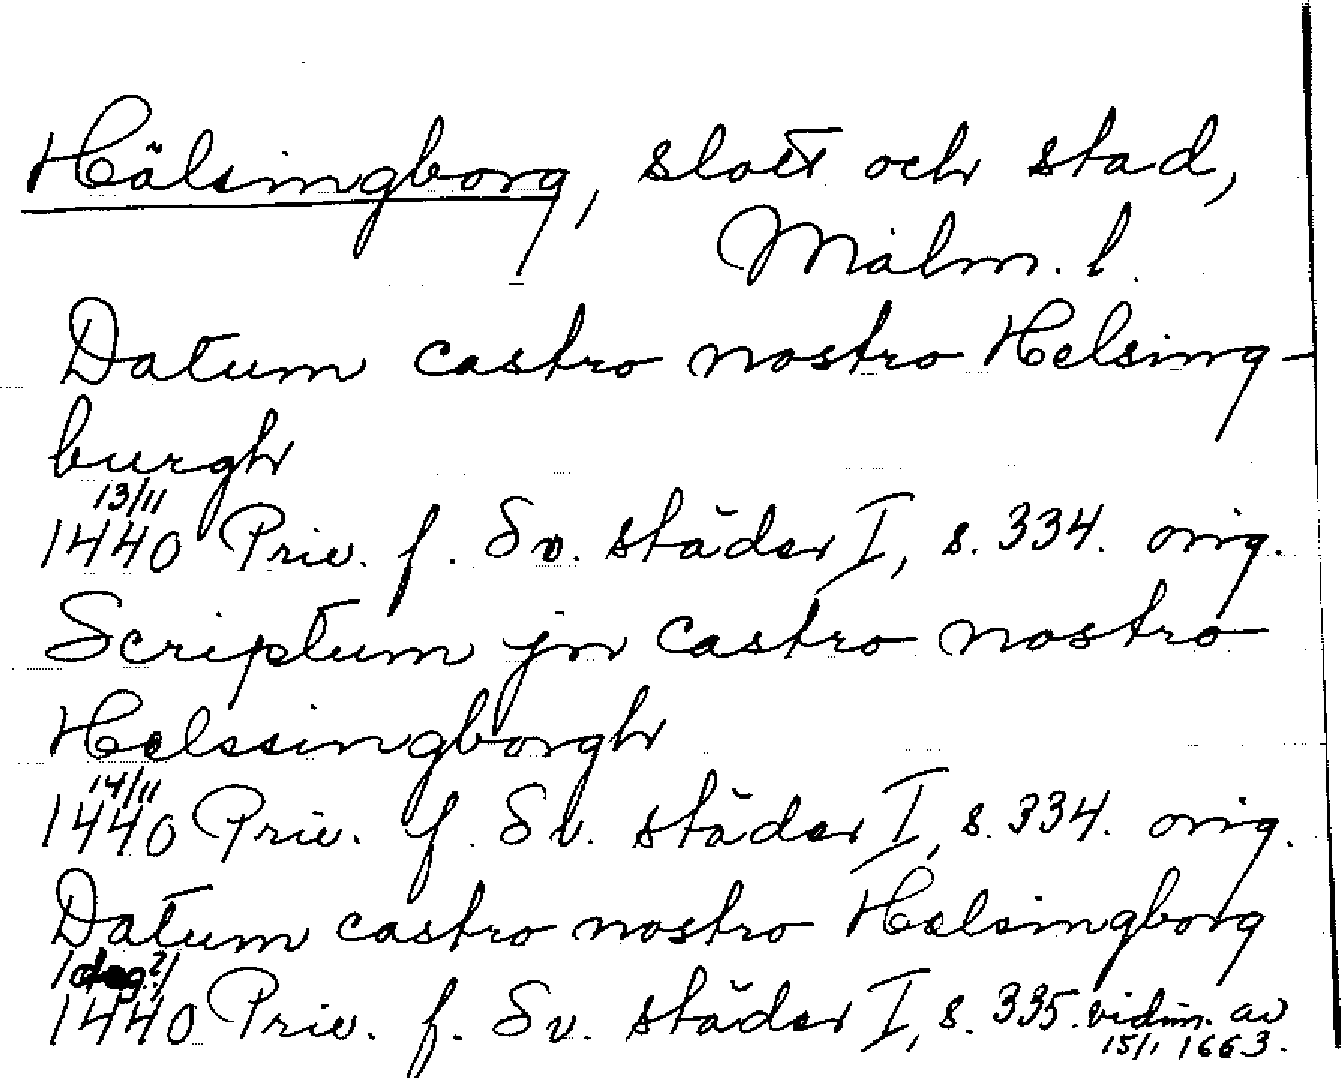 Hälsingborg, slott och stad,
Malm. l.
Datum castro nostro Helsing-
burgh
13/11
1440 Priv. f. Sv. städer I, s. 334. orig.
Scriptum jn castro nostro
Helssingborgh
14/11
1440 Priv. f. Sv. städer I, s. 334. orig.
Datum castro nostro Helsingborg
(dag?)
1440 Priv. f. Sv. städer I, s. 335. vidim. av
15/1 1663.